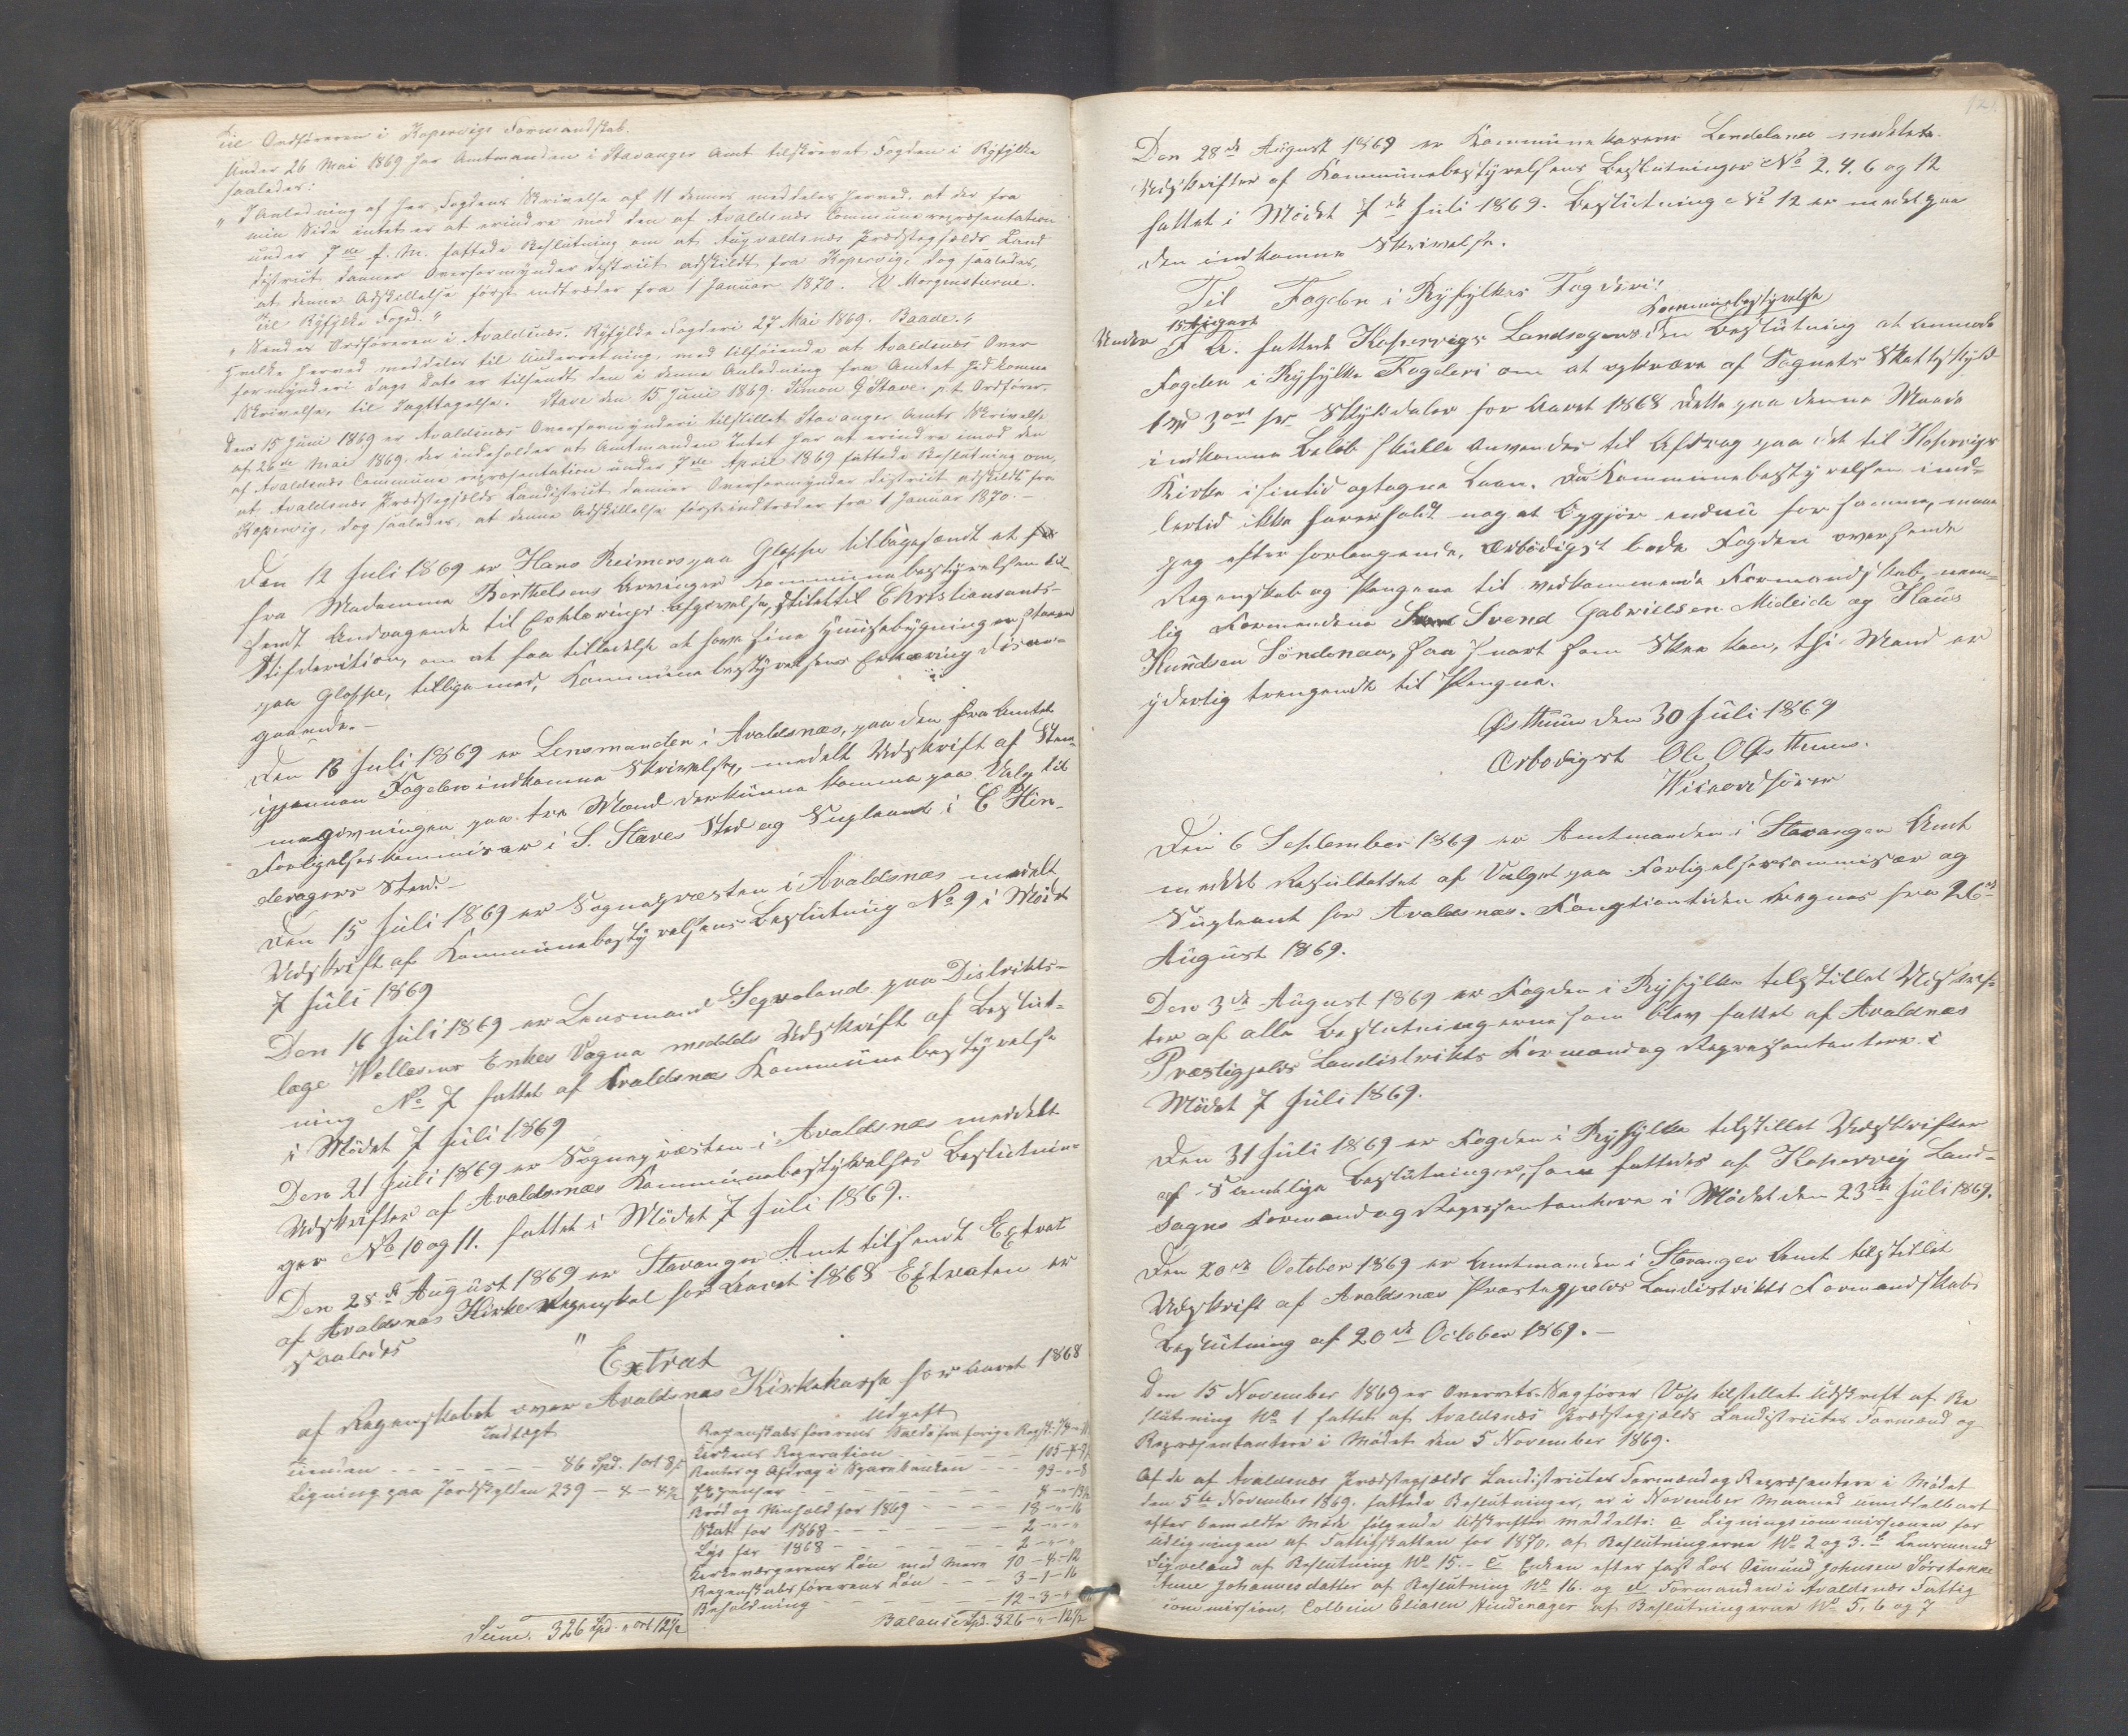 Til Ordføreren i Kopervigs Formandskab.
Under 26 Mai 1869 har Amtmanden i Stavanger Amt tilskrevet Fogden i Ryfylke
saaledes:
" I Anledning af Hr. Fogdens Skrivelse af 11 dennes meddeles herved, at der fra
min Side intet er at erindre mod den af Avaldsnæs Communerepræsentation
under 7de f. M. fattede Beslutning om at Augvaldsnæs Prædstegjælds Land
distrikt danner Overformynder distriit adskildt fra Kopervig, dog saaledes,
at denne Adskillelse først indtræder fra 1 Januar 1870. Morgenstierne.
Til Ryfylke Foged."
" Sendes Ordføreren i Avaldsnæs. Ryfylke Fogderi 27 Mai 1869. Baade."
Hvilke herved meddeles til Underretning, med tilføiende at Avaldsnæs Over
formynderi Dags Dato er tilsendt den i denne Anledning fra Amtet hidkomne
Skrivelse, til Iagttagelse. Stave den 15 Juni 1869. Simon G Stave. p.t. Ordfører.
Den 15 Juni 1869 er Avaldsnæs Overformynderi tilstillet Stavanger Amts Skrivelse
af 26de Mai 1869. der indeholder at Amtmanden Intet har at erindre imod den
af Avaldsnæs Commune repræsentation under 7de April 1869 fattede Beslutning om,
at Avaldsnæs Prædstegjælds Landistriit danner Overformynder distriit adskildt fra
Kopervig, dog saaledes, at denne Adskillelse først indtræder fra 1 Januar 1870.-
Den 12 Juli 1869 er Hans Reimers paa Gloppe tilbagesendt et
fra Madamme Berthelsens Arvinger Kommunebestyrelsen til-
sendt Andragende til Erklærings afgivelse, stilet til Christiansands-
Stifdirition, om at faa tilladelse at have sine Huusebygninger staaende
paa Gloppe, tilligemed, Kommunebestyrelsens Erklæring desan-
gaaende.-
Den 13 Juli 1869 er Lensmanden i Avaldsnæs, paa den fra Amtet
igjennem Fogden indkomne Skrivelse, meddelt Udskrift af Stem-
megivningen paa tre Mænd der kunne komme paa Valg til
Forligelseskommisær i S. Staves Sted og Supleant i E Hin-
deragers Sted.-
Den 15 Juli 1869 er Sognepræsten i Avaldsnæs meddelt
Udskrift af Kommunebestyrelsens Beslutning No 9 i Mødet
7 Juli 1869
Den 16 Juli 1869 er Lensmand Segveland paa Distrikts-
læge Wellesens Enkes Vegne meddelt Udskrift af Beslut-
ning No 7 fattet af Avaldsnæs Kommunebestyrelse
i Mødet 7 Juli 1869
Den 21 Juli 1869 er Sognepræsten i Avaldsnæs meddelt
Udskrifter af Avaldsnæs Kommunebestyrelses Beslutnin-
ger No 10 og 11. fattet i Mødet 7 Juli 1869.
Den 28de August 1869 er Stavanger Amt tilsendt Extrat
af Avaldsnæs Kirke Regenskab for Aaret 1868 Extraten er
saaledes
" Extrat
af Regenskabet over Avaldsnæs Kirkekasse for Aaret 1868
Indtægt
Tienden - - - 86 Spd. 1 ort 8 s
Ligning paa Jordskylden 239 - 4 - 4½
Sum. 326 Spd. " ort 12½
Udgift
Regenskabsførerens Saldo fra forige Regsk.
Kirkens Reperation - - - 105-4-
Renter og Afdrag i Sparebanken - - 99-"-8
Expenser - - -
Brød og Viinhold for 1869 - - - 18-"-16
Skat for 1868 - - - 2-"-"
Lys for 1868 - - - 2-"-"
Kirkeværgerens Løn med mere 10-4-12
Regenskabsførerens Løn - - - 3-1-16
Beholdning - - - 12-3-
Balanse Spd. 326-"-12½
Den 28de August 1869 er Kommunekaserer Lendelanes meddelte
Udskrifter af Kommunebestyrelsens Beslutninger No 2. 4. 6 og 12
fattet i Mødet 7de Juli 1869. Beslutning No 12 er meddelt paa
den indkomne Skrivelse.
Til Fogden i Ryfylkes Fogderi!
Under 15 August F A. fattede Kopervigs Landsogns Kommunebestyrelse den Beslutning at anmode
Fogden i Ryfylke Fogderi om at opkræve af Sognets Skatteskyld
3 ort pr Skylddaler for Aaret 1868 Dette paa denne Maade
indkomne Beløb skulle anvendes til Afdrag paa det til Kopervigs
Kirke i sintid optagne Laan. Da Kommunebestyrelsen imid-
lertid ikke har erholdt noget Opgjør endnu for samme, maa
jeg efter forlangende, Ærbødigst bede Fogden oversende
Regenskab og Pengene til vedkommende Formandskab, nem-
lig Formændene Svend Gabrielsen Mideide og Klaus
Knudsen Söndenaa, saa snart som Skee kan, thi Mand er
yderlig trengende til Pengene.
Østhuus den 30 Juli 1869
Ærbødigst Ole O Østhuus.
Viceordfører
Den 6 September 1869 er Amtmanden i Stavanger Amt
meddelt Resultattet af Valget paa Forligelseskommisær og
Supleant for Avaldsnæs. Fungtiontiden regnes fra 26de
August 1869.
Den 3de August 1869 er Fogden i Ryfylke tilstillet Udskrif-
ter af alle Beslutningerne som blev fattet af Avaldsnæs
Præstegjelds Landistrikts Formænd og Repræsentantere i
Mødet 7 Juli 1869.
Den 31 Juli 1869 er Fogden i Ryfylke tilstillet Udskrifter
af Samtlige Beslutninger, som fattedes af Kopervig Land-
sogns Formænd og Representantere i Mødet den 23de Juli 1869.
Den 20de October 1869 er Amtmanden i Stavanger Amt tilstillet
Udskrift af Avaldsnæs Præstegjelds Landistrikts Formandskabs
Beslutning af 20de October 1869.-
Den 15 November 1869 er Overrets Sagfører Voss tilstellet Udskrift af Be
slutning No 1 fattet af Avaldsnæs Prædstegjælds Landistriits Formænd og
Repræsentantere i Mødet den 5 November 1869.
Af de af Avaldsnæs Prædstegjælds Landistriits Formænd og Repræsentere i Mødet
den 5te November 1869. fattede Beslutninger, er i November Maaned umidelbart
efter bemeldte Møde følgende Udskrifter meddelte: a Lignings commissionen for
Udligningen af Fattigskatten for 1870. af Beslutningerne No 2 og 3. b Lensmand
Sigveland af Beslutning No 15.- c Enken efter Osmund Johnsen
Anne Johannesdatter af Beslutning No 16. og d Formanden i Avaldsnæs Fattig
commission, Colbein Eliasen Hindenager af Beslutningerne No 5, 6 og 7